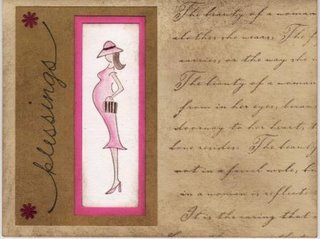 blessings
The beauty of a woman
clothes she wears. The f
carries, or the way she
The beauty of a woman
from in her eyes, becau
doorway to her heart, t
love resides. The beauty
not in a facial mole, bu
in a woman is reflecte
It is the caring that s